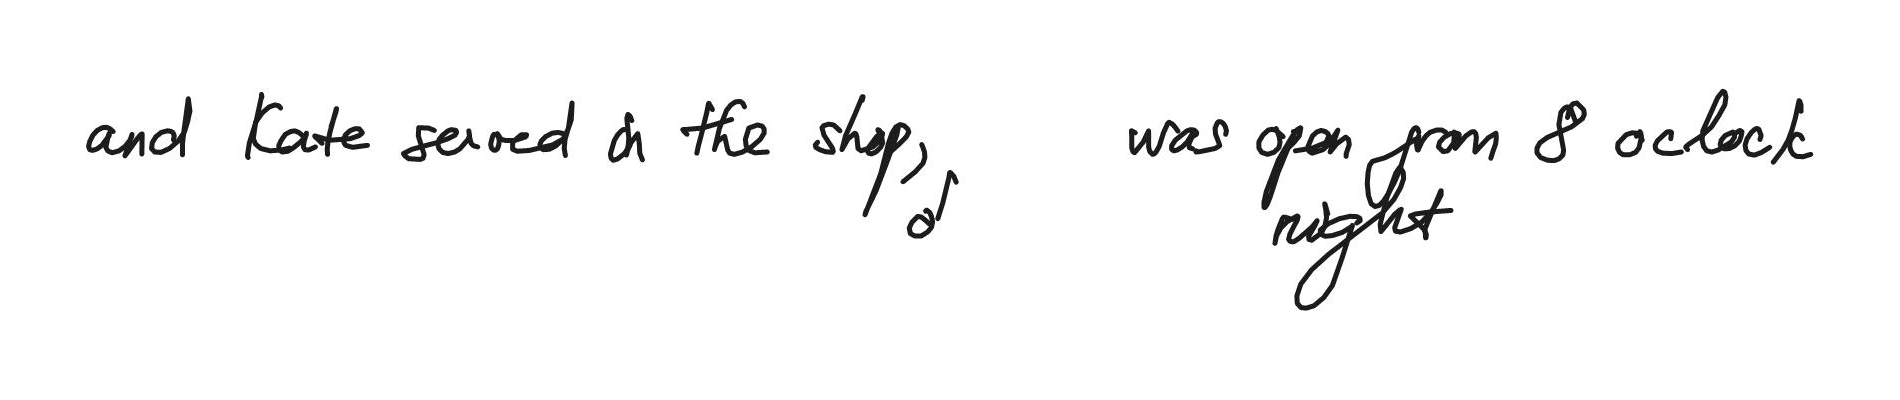 and Kate served in the shop, was open from 8 oclock
of night